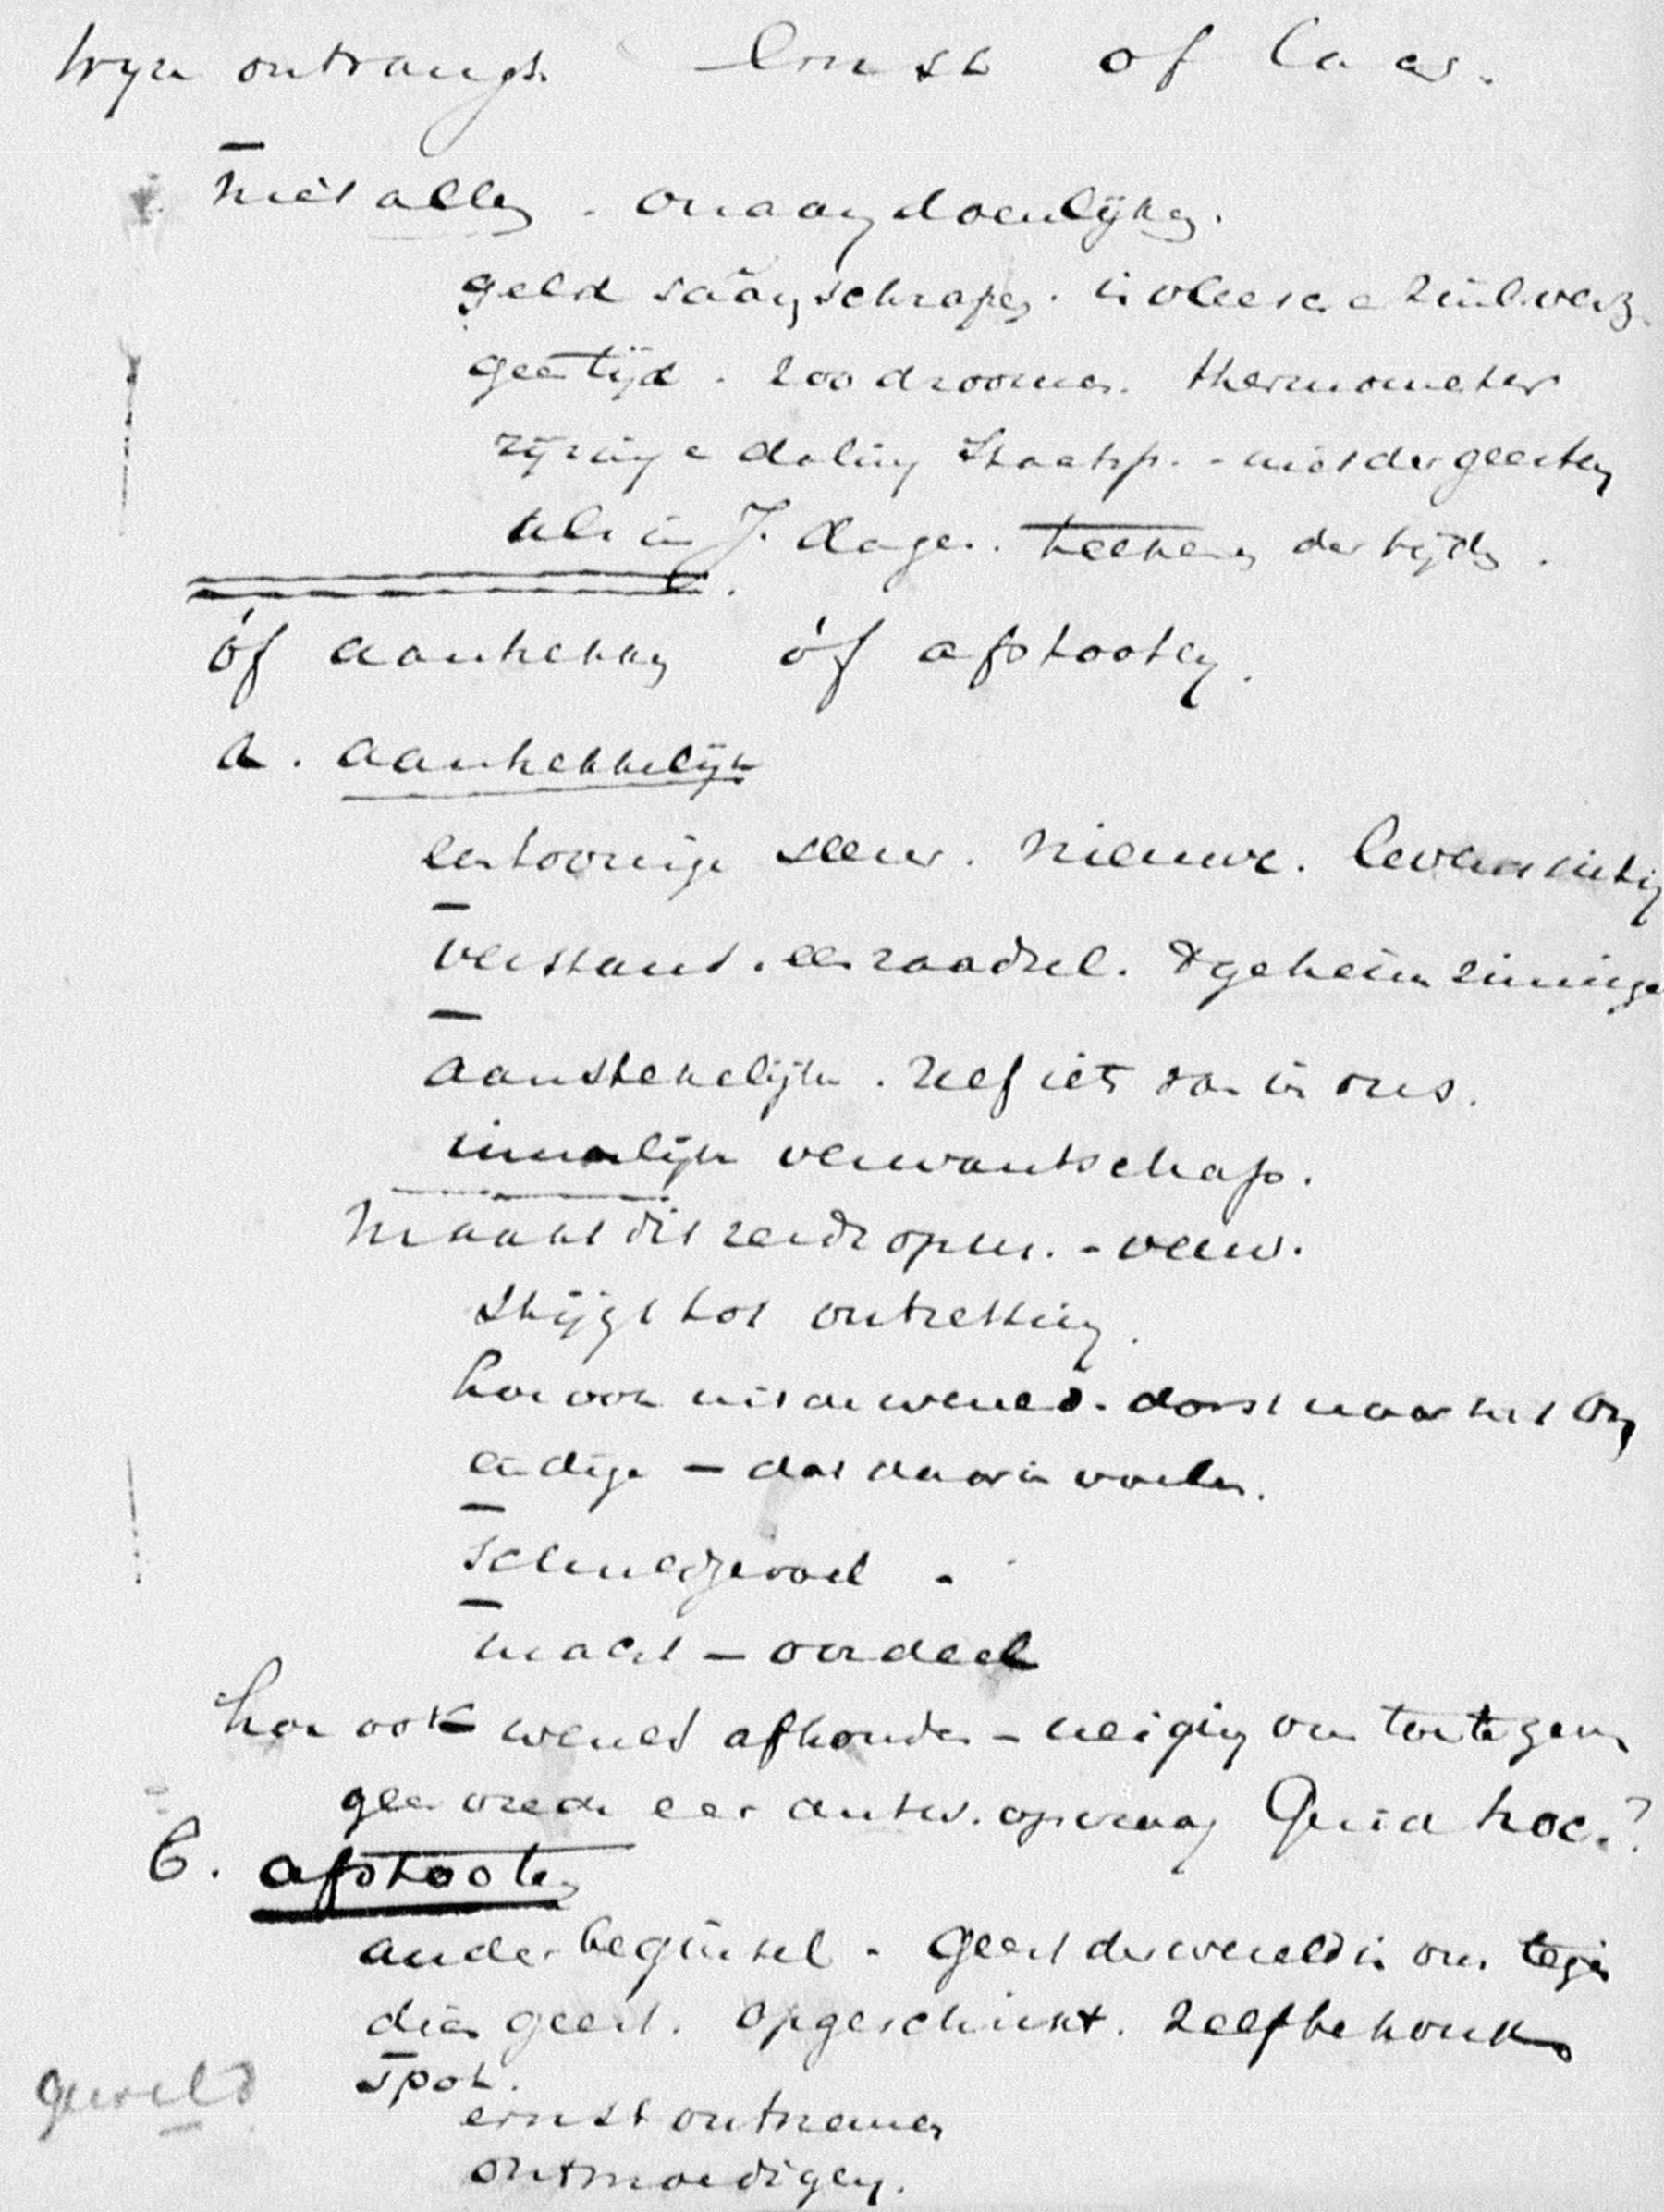 wijze ontvangst. Ernst of Caes.
niet allen. onaandoenlijken.
geld saamschrapen. in vleesch & zinl. verz
geen tijd. zoo droomen. thermometer
rijzing & daling Staatsp. - niet der geesten
als in J. dagen. teekenen der tijden.
óf aantrekken óf afstooten.
a. aantrekkelijk
eentoonige nieuwe.
verstand. een raadsel. 't geheimzinnige
aanstekelijk. zelf iets van in ons.
innerlijke verwantschap.
maakt dit reeds opm. - verw.
stijgt tot ontzetting.
hoe ook uit de wereld. dorst naar het On
eindige - dat daarin voelen.
schuldgevoel.
macht - oordeel
hoe ook wereld afhouden - neiging om toe te geven
geen vrede eer antw. op vraag Quid hoc?
b. afstooten
ander beginsel. Geest der wereld in ons tegen
dien geest. opgeschrikt. zelfbehoud
spot.
geweld
ernst ontnemen
ontmoedigen.